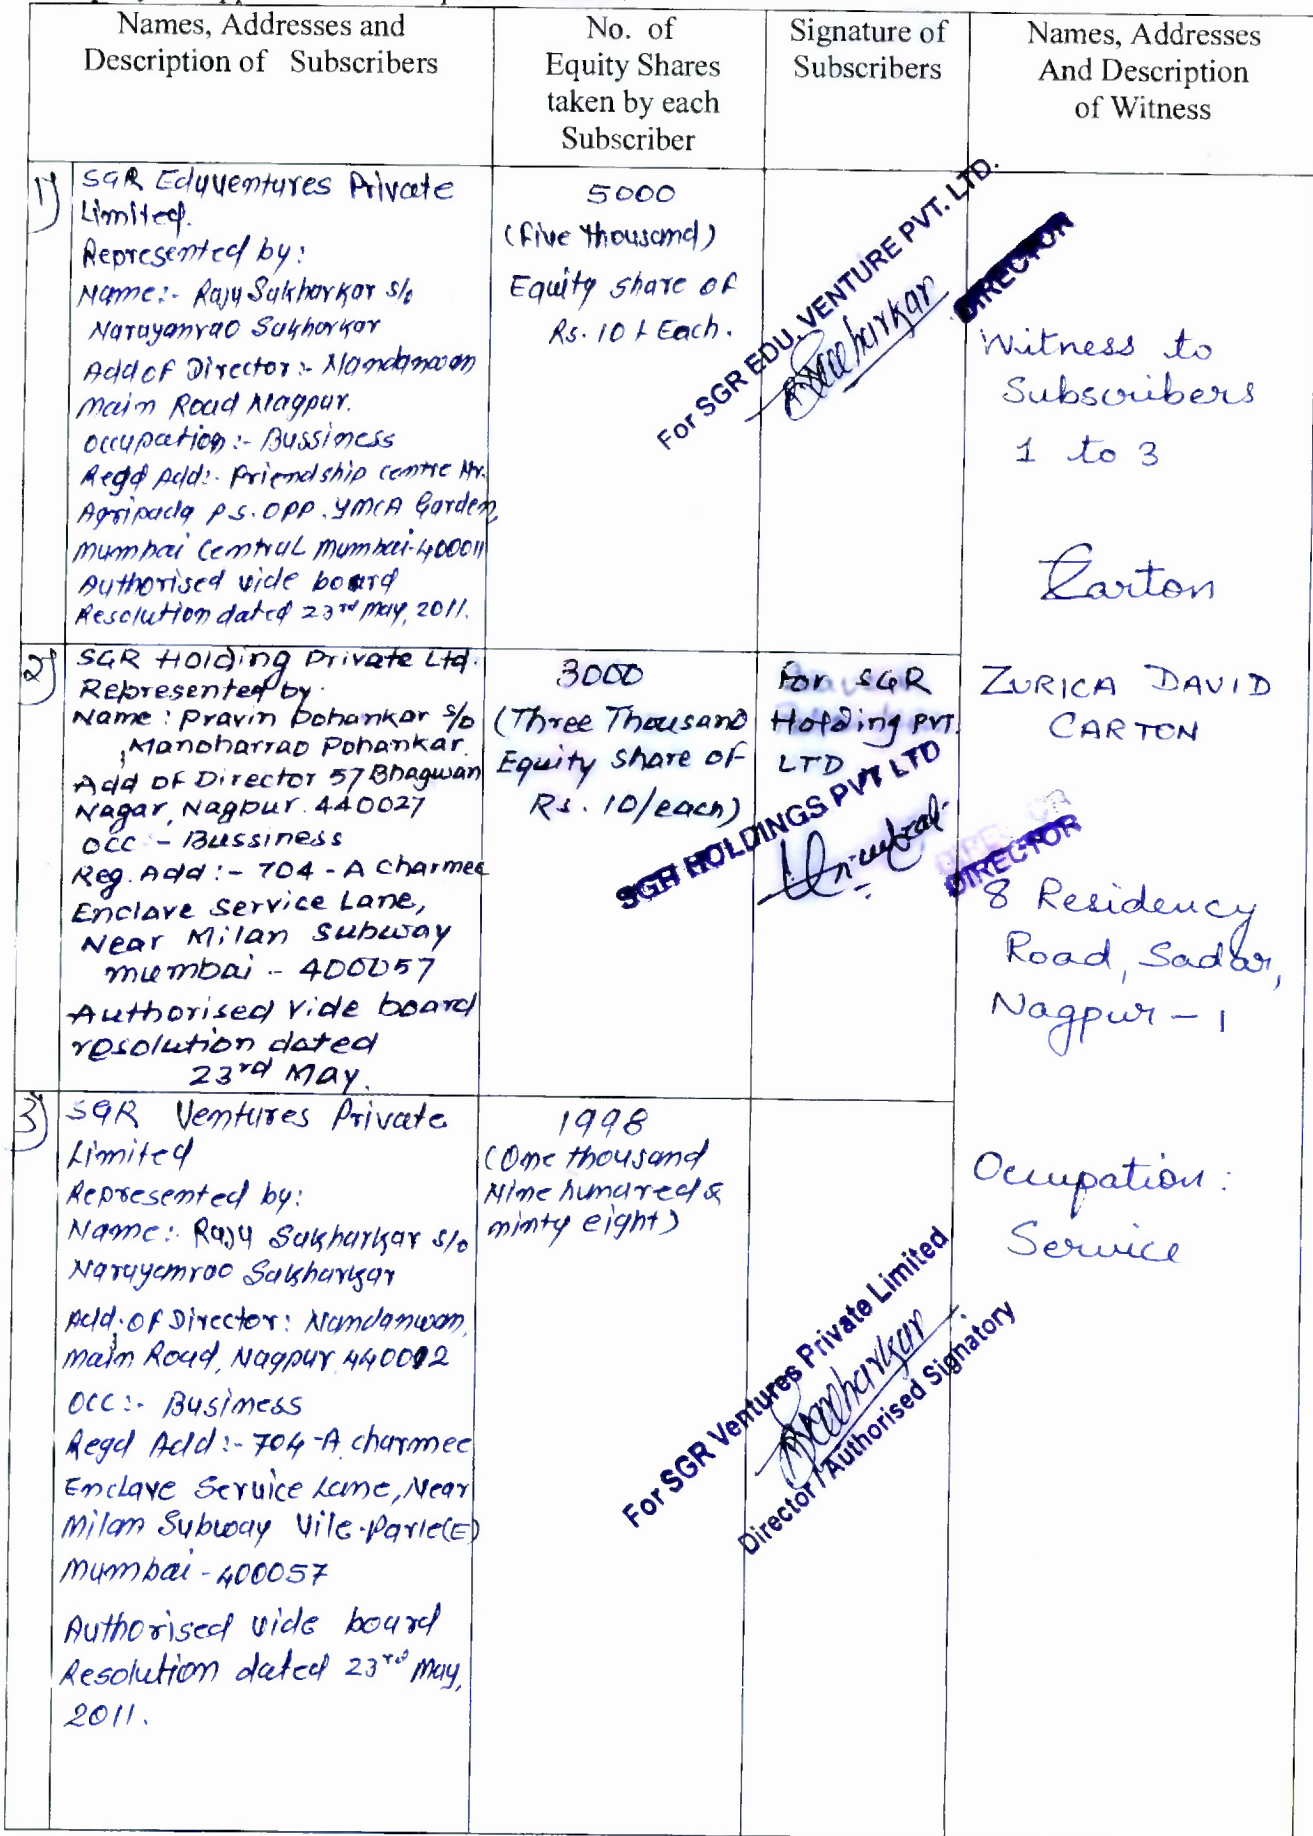 Names, Addresses and
Description of Subscribers
No. of
Equity Shares
taken by each
Subscriber
Signature of
Subscribers
Names, Addresses
And Description
of Witness
1)
SGR Eduventures Private
Limited.
Represented by:
Name:- Raju Sakharkar s/o
Narayanrao Sakharkar
Add of Director:- Nandanwan
Main Road Nagpur.
Occupation:- Bussiness
Regd Add:- Friendship centre Nr.
Agripada P.S. OPP. YMCA Garden,
Mumbai Central Mumbai-400011
Authorised vide board
Resolution dated 23rd May, 2011.
5000
(Five thousand)
Equity share of
Rs. 10/- Each.
For SGR EDU. VENTURE PVT. LTD.
DIRECTOR
Witness to
Subscribers
1 to 3
Carton
ZURICA DAVID
CARTON
8 Residency
Road, Sadar,
Nagpur - 1
Occupation:
Service
2)
SGR Holding Private Ltd.
Represented by.
Name: Pravin Pohankar s/o
Manoharrao Pohankar.
Add of Director 57 Bhagwan
Nagar, Nagpur. 440027
OCC - Bussiness
Reg. Add:- 704-A Charmee
Enclave Service Lane,
Near Milan Subway
Mumbai - 400057
Authorised Vide board
resolution dated
23rd May.
3000
(Three Thousand
Equity share of
Rs. 10/each)
For SGR
Holding PVT.
LTD
SGR HOLDINGS PVT LTD
DIRECTOR
3)
SGR Ventures Private
Limited
Represented by:
Name:- Raju Sakharkar s/o
Narayanrao Sakharkar
Add. of Director: Nandanwan,
main Road, Nagpur 440012
OCC:- Business
Regd Add:- 704-A charmee
Enclave Service Lane, Near
Milan Subway Vile-Parle(E)
Mumbai - 400057
Authorised vide board
Resolution dated 23rd May,
2011.
1998
(One thousand
Nine hundred &
ninty eight)
For SGR Ventures Private Limited
Director / Authorised Signatory